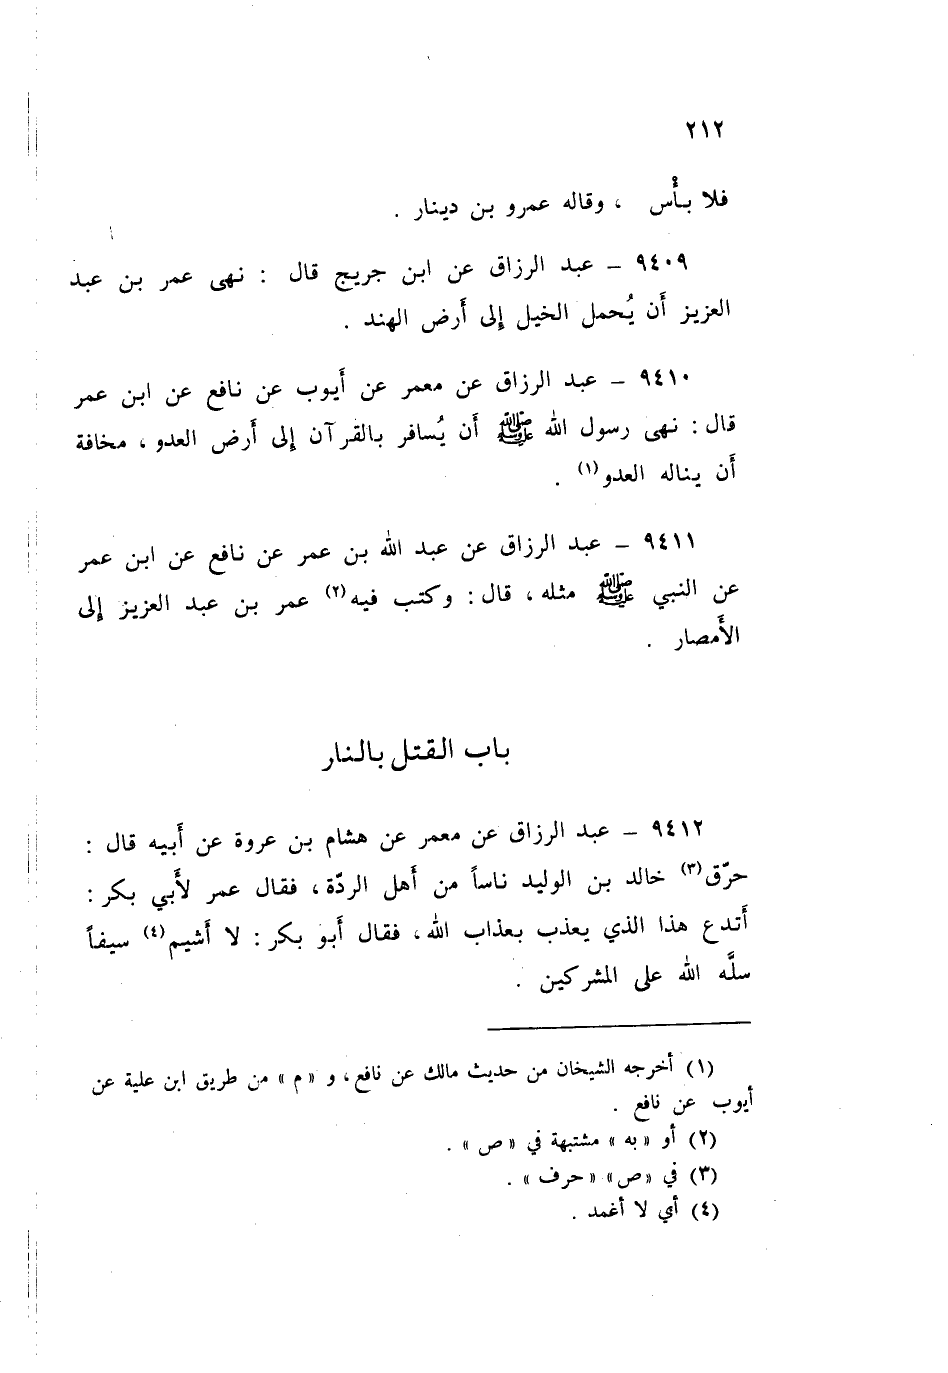 ٢١٢
فلا بأْس ، وقاله عمرو بن دينار .
٩٤٠٩ – عبد الرزاق عن ابن جريج قال : نهى عمر بن عبد
العزيز أَن يُحمل الخيل إِلى أَرض الهند .
٩٤١٠ – عبد الرزاق عن معمر عن أَيوب عن نافع عن ابن عمر
قال : نهى رسول الله ﷺ أَن يُسافر بالقرآن إِلى أَرض العدو ، مخافة
أَن يناله العدو(١) .
٩٤١١ – عبد الرزاق عن عبد الله بن عمر عن نافع عن ابن عمر
عن النبي ﷺ مثله ، قال : وكتب فيه(٢) عمر بن عبد العزيز إِلى
الأَمصار .
باب القتل بالنار
٩٤١٢ – عبد الرزاق عن معمر عن هشام بن عروة عن أَبيه قال :
حرّق(٣) خالد بن الوليد ناساً من أَهل الردّة ، فقال عمر لأَبي بكر :
أَتدع هذا الذي يعذب بعذاب الله ، فقال أَبو بكر : لا أَشيم(٤) سيفاً
سلَّه الله على المشركين .
(١) أخرجه الشيخان من حديث مالك عن نافع ، و « م » من طريق ابن علية عن
أيوب عن نافع .
(٢) أو « به » مشتبهة في « ص » .
(٣) في « ص » « حرف » .
(٤) أي لا أغمد .